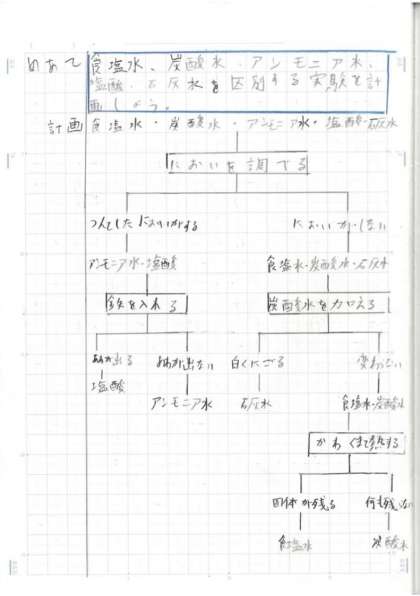 めあて 食塩水、炭酸水、アンモニア水、
塩酸、石灰水を区別する実験を計
画しよう。
計画 食塩水・炭酸水・アンモニア水・塩酸・石灰水
においを調べる
つんとしたにおいがする においがしない
アンモニア水・塩酸 食塩水・炭酸水・石灰水
鉄を入れる 炭酸水を加える
あわが出る あわが出ない 白くにごる 変わらない
塩酸 アンモニア水 石灰水 食塩水・炭酸水
かわくまで熱する
固体が残る 何も残らない
食塩水 炭酸水